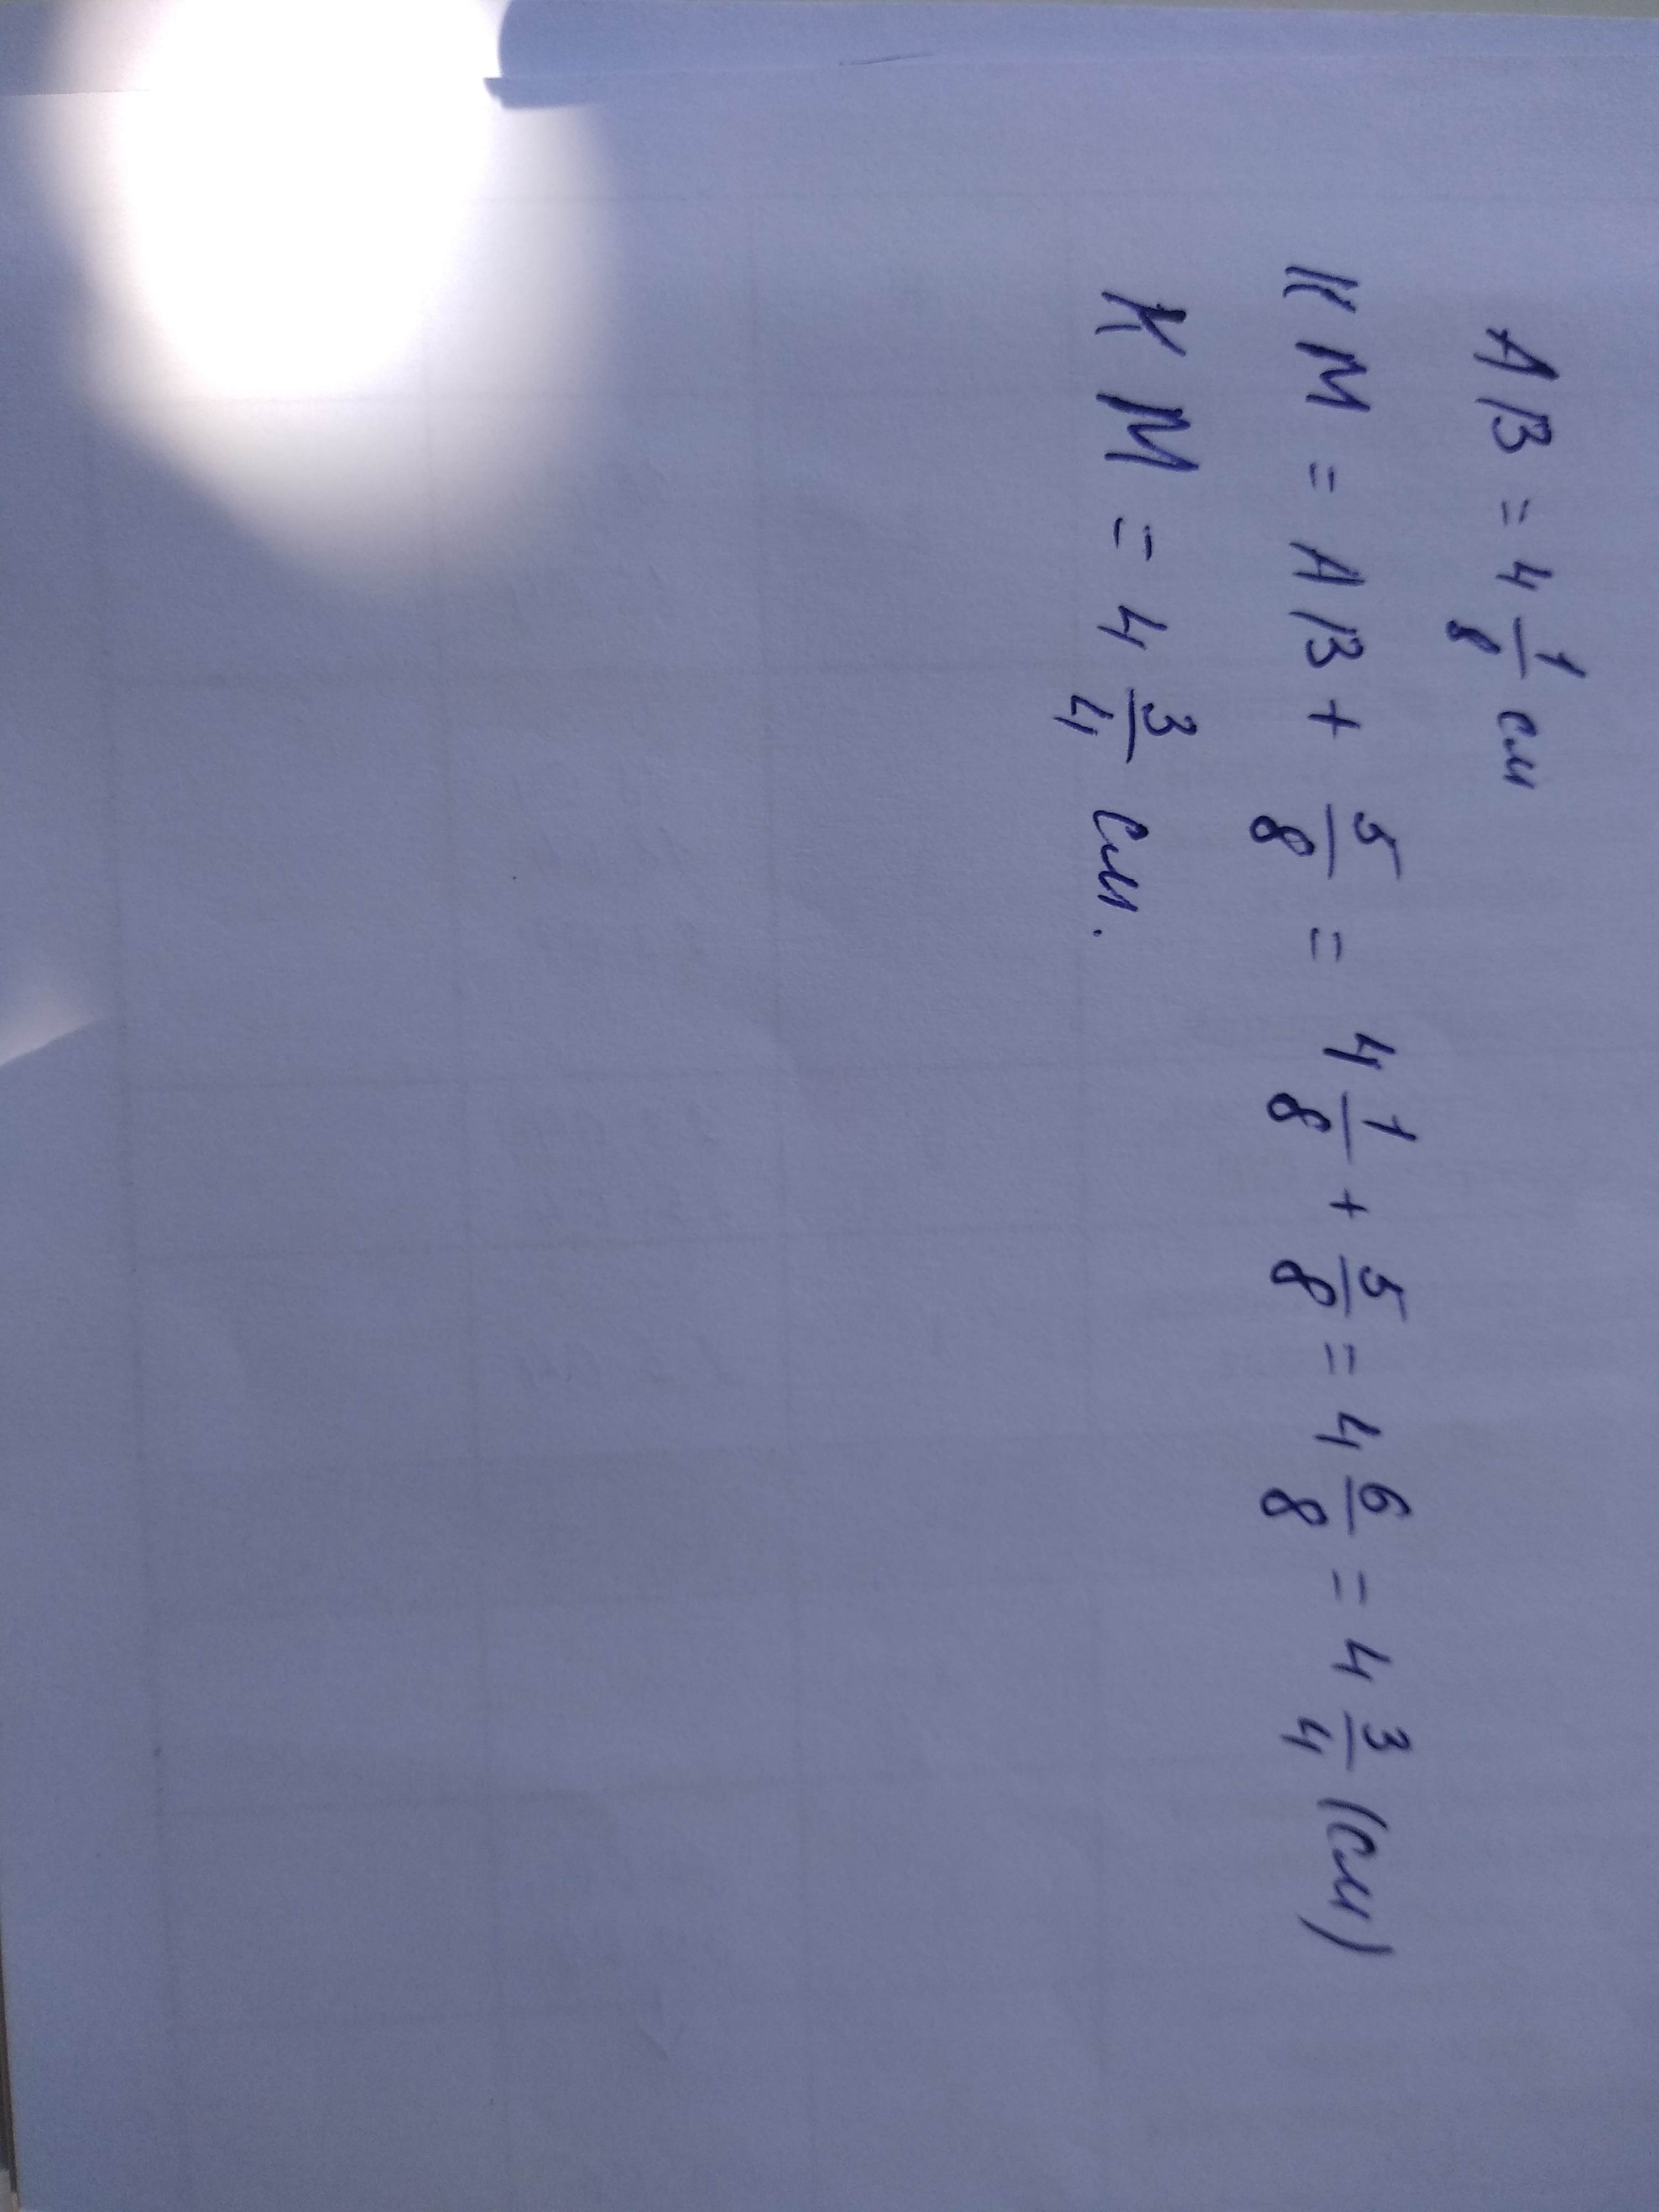 AB = 4 1/8 см
KM = AB + 5/8 = 4 1/8 + 5/8 = 4 6/8 = 4 3/4 (см)
KM = 4 3/4 см.